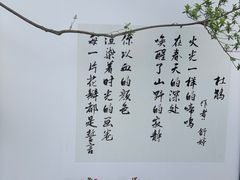 杜鹃
作者 舒婷
火光一样的啼鸣
在春天的深处
唤醒了山野的寂静
你以血的颜色
渲染着时光的画卷
每一片花瓣都是誓言